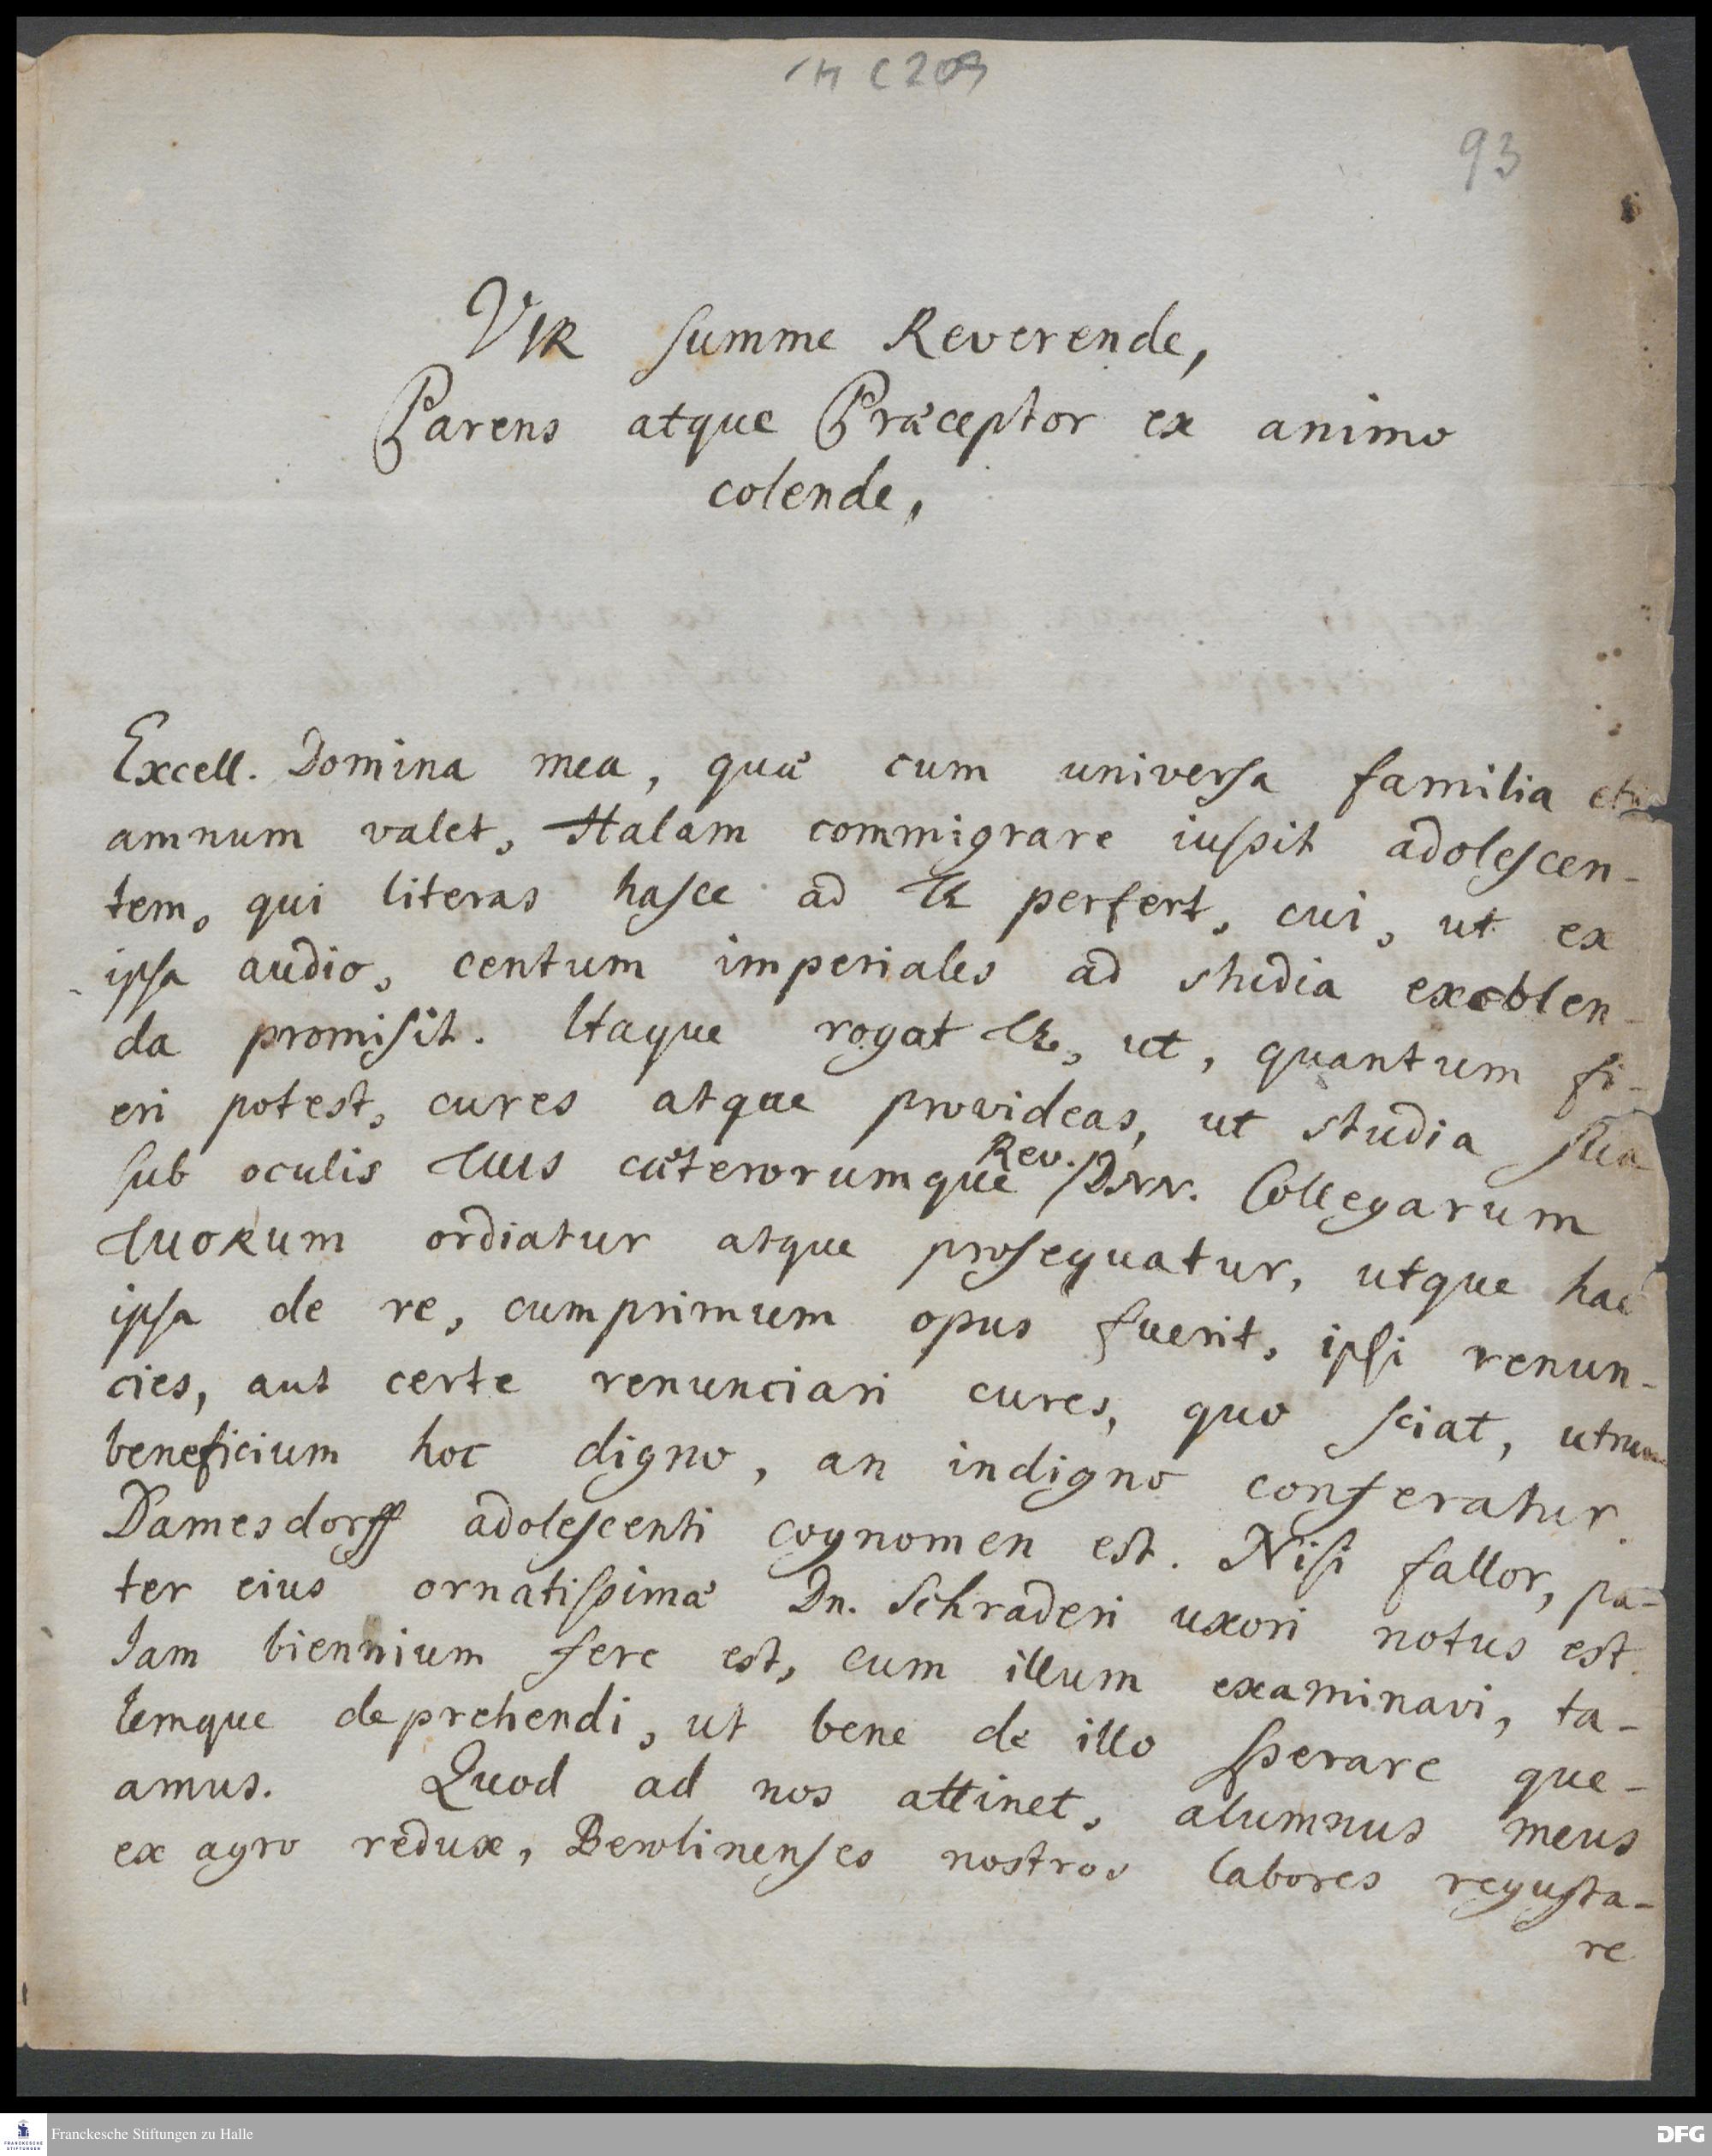 H C 209
93
VIR summe Reverende,
Parens atque Præceptor ex animo
colende,
Excell. Domina mea, quæ cum universa familia
amnum valet, Halam commigrare iussit adolescen-
tem, qui literas hasce ad TE perfert, cui, ut ex
ipsa audio, centum imperiales ad studia excolen-
da promisit. Itaque rogat TE, ut, quantum fi-
eri potest, cures atque provideas, ut studia sua
sub oculis TUIS cæterorumque Rev. DNN. Collegarum
TUORUM ordiatur atque prosequatur, utque hac
ipsa de re, cumprimum opus fuerit, ipsi renun-
cies, aut certe renunciari cures, quo sciat, utrum
beneficium hoc digno, an indigno conferatur.
Damesdorff adolescenti cognomen est. Nisi fallor, pa-
ter eius ornatissimæ Dn. Schraderi uxori notus est.
Iam biennium fere est, cum illum examinavi, ta-
lemque deprehendi, ut bene de illo sperare que-
amus. Quod ad nos attinet, alumnus meus
ex agro redux, Berolinenses nostros labores regusta-
re
Franckesche Stiftungen zu Halle
FRANCKESCHE
STIFTUNGEN
DFG